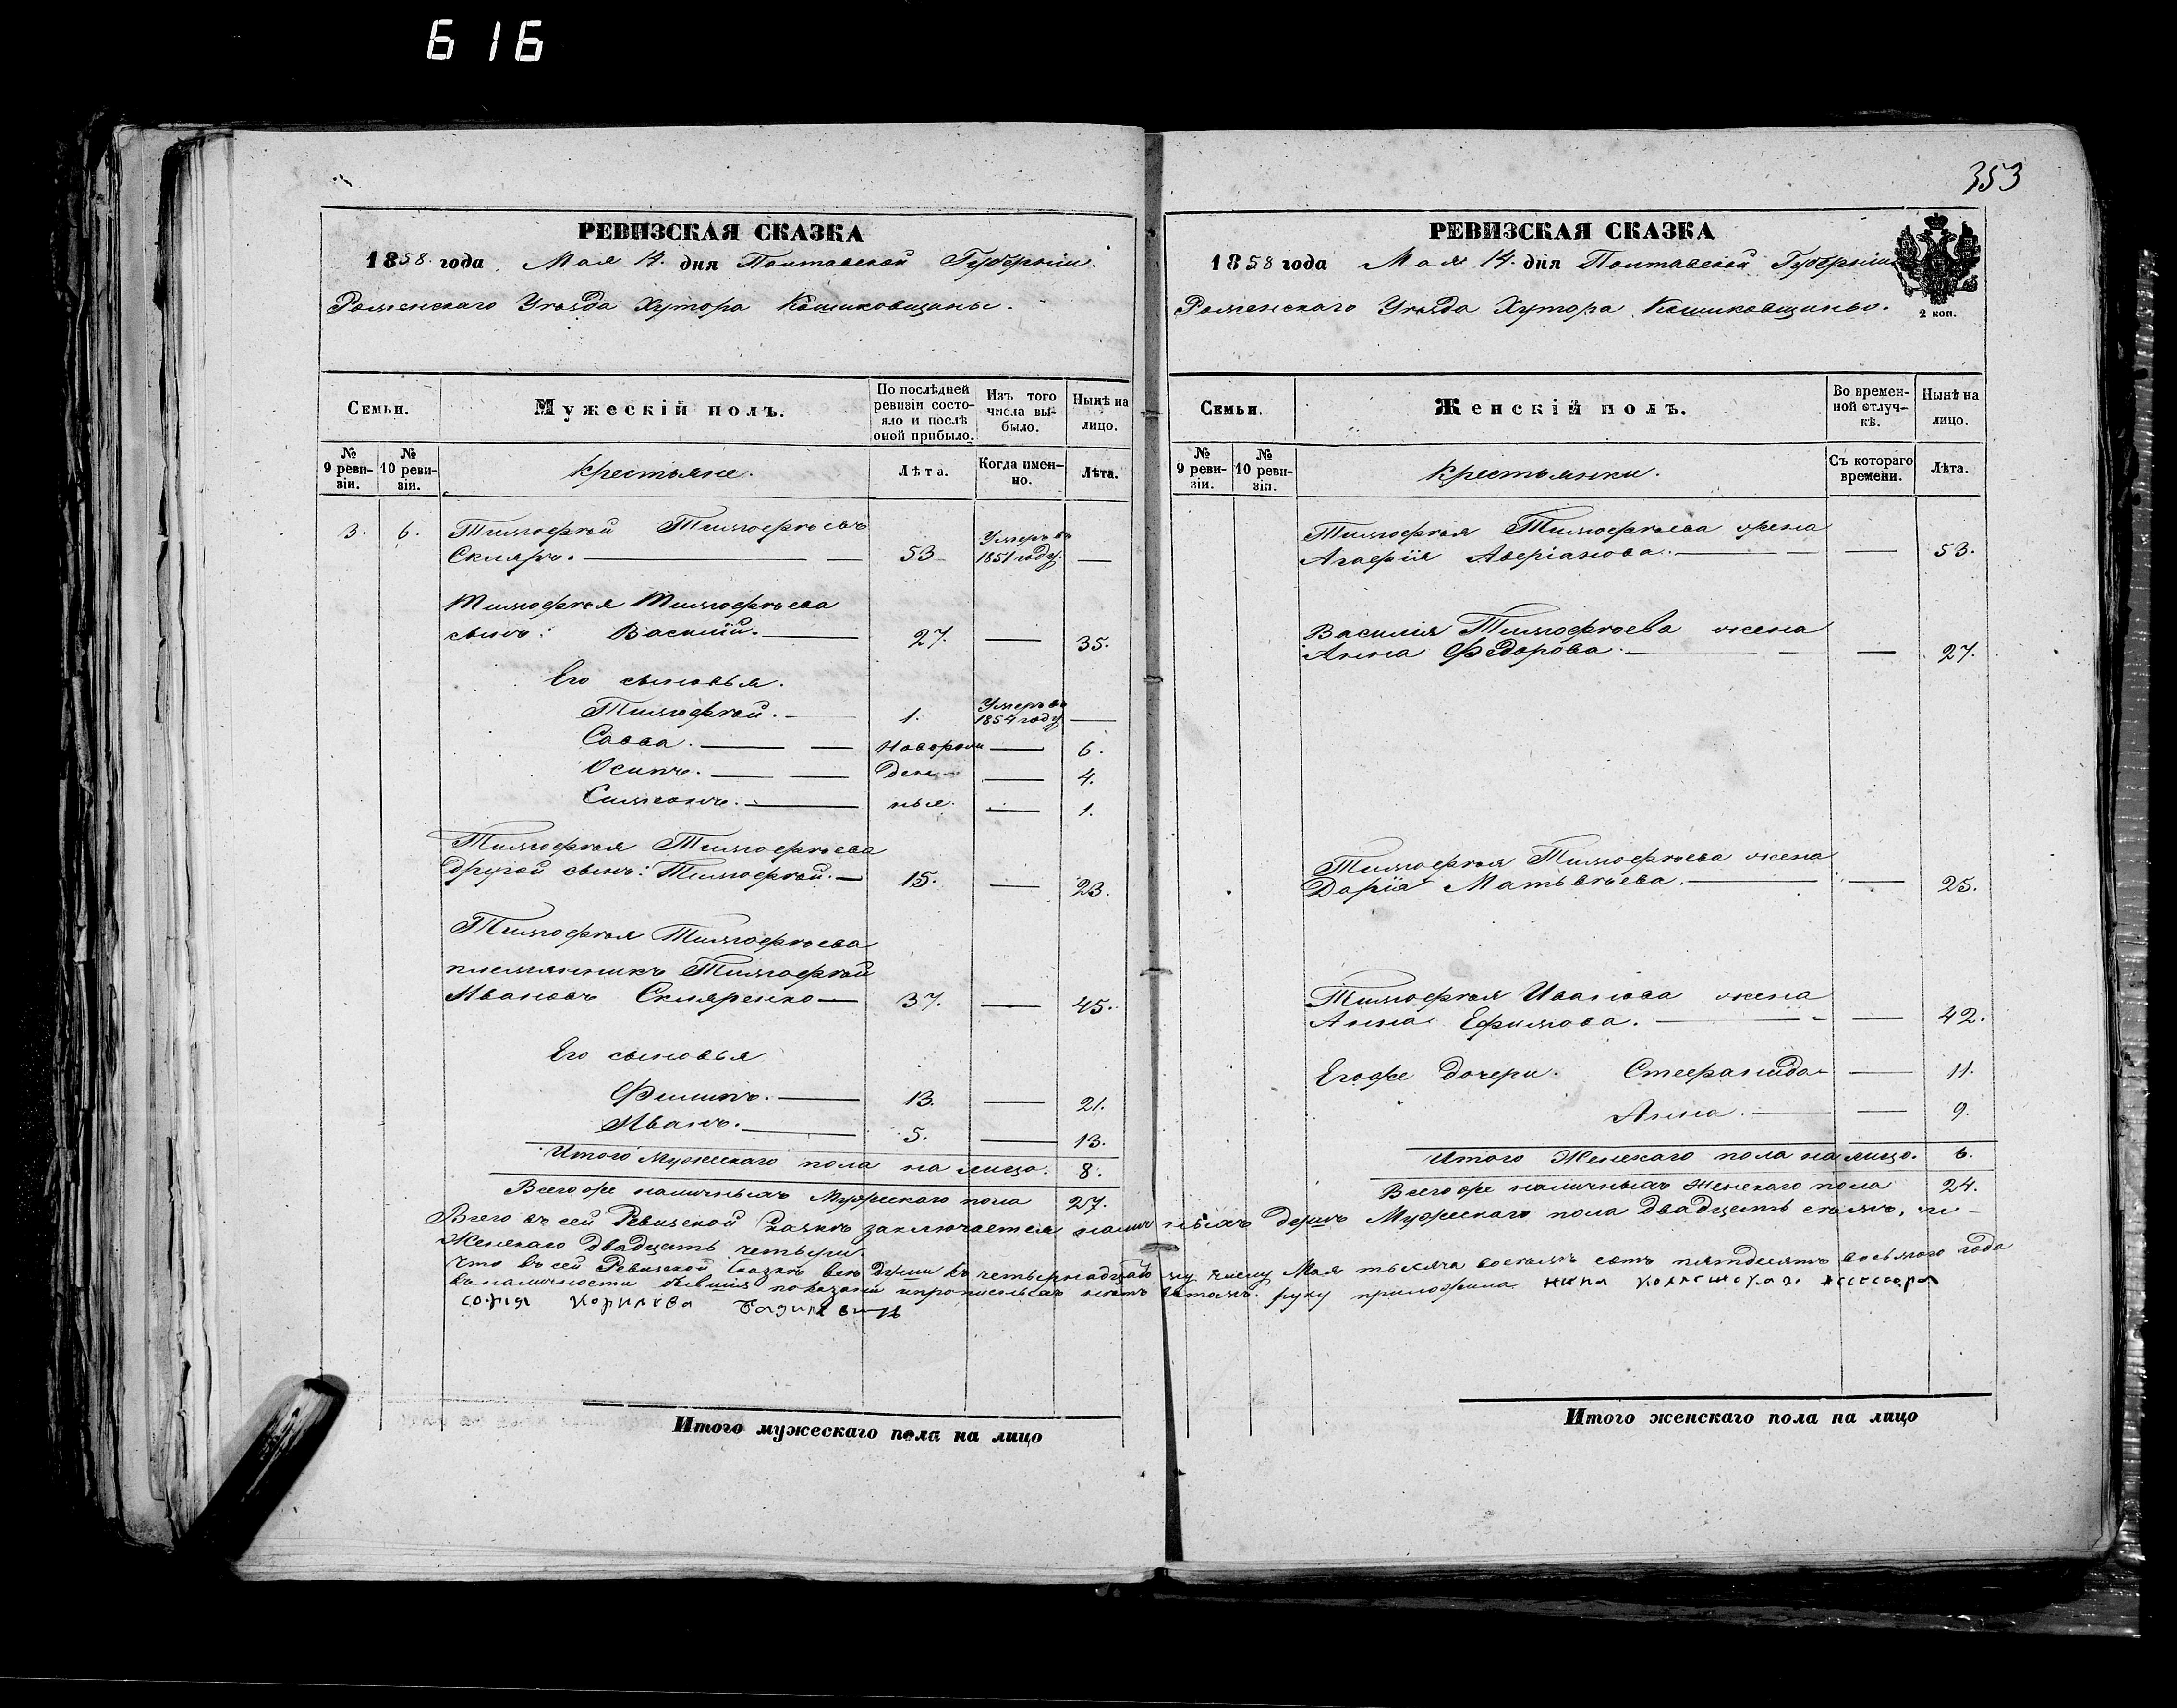 616
353
РЕВИЗСКАЯ СКАЗКА
1858. года Мая 14. дня Полтавской Губерніи
Роменскаго Уѣзда Хутора Кошиковщины.
Семьи.
Мужескій полъ.
По послѣдней ревизіи состояло и послѣ оной прибыло.
Изъ того числа выбыло.
Нынѣ на лицо.
№ 9 ревизіи.
№ 10 ревизіи.
Крестьяне.
Лѣта.
Когда именно.
Лѣта.
3. 6. Тимофѣй Тимофѣевъ
Скляръ. 53 Умеръ въ 1851 году.
Тимофѣя Тимофѣева
сынъ: Василій. 27. 35.
Его сыновья.
Тимофѣй. 1. Умеръ въ 1854 году
Савва. новорож 6.
Осипъ. ден 4.
Симеонъ. ные. 1.
Тимофѣя Тимофѣева
другой сынъ: Тимофѣй. 15. 23.
Тимофѣя Тимофѣева
племянникъ Тимофѣй
Ивановъ Скляренко 37. 45.
Его сыновья
Филипъ. 13. 21.
Иванъ. 5. 13.
Итого Мужескаго пола на лицо. 8.
Всегоже наличныхъ Мужескаго пола 27.
РЕВИЗСКАЯ СКАЗКА
1858 года Мая 14. дня Полтавской Губерніи
Роменскаго Уѣзда Хутора Кошиковщины.
2 коп.
Семьи.
Женскій полъ.
Во временной отлучкѣ.
Нынѣ на лицо.
№ 9 ревизіи.
№ 10 ревизіи.
Крестьянки.
Съ котораго времени.
Лѣта.
Тимофѣя Тимофѣева жена
Агафія Аверіанова. 53.
Василія Тимофѣева жена
Анна Федорова. 27.
Тимофѣя Тимофѣева жена
Дарія Матвѣева. 25.
Тимофѣя Иванова жена
Анна Ефимова. 42.
Егоже дочери. Стефанида 11.
Анна. 9.
Итого Женскаго пола на лицо. 6.
Всегоже наличныхъ Женскаго пола 24.
Всего въ сей Ревизской Сказкѣ заключается наличныхъ душъ Мужескаго пола двадцать семь, и
Женскаго двадцать четыри.
Что въ сей Ревизской Сказкѣ всѣ души къ четырнадцатому числу Мая тысяча восемь сотъ пятдесятъ восьмого года
въ наличности бывшія показаны и прописныхъ нѣтъ въ томъ руку приложила жина колежскаго асесора
софия Корнѣева
Итого мужескаго пола на лицо
Итого женскаго пола на лицо